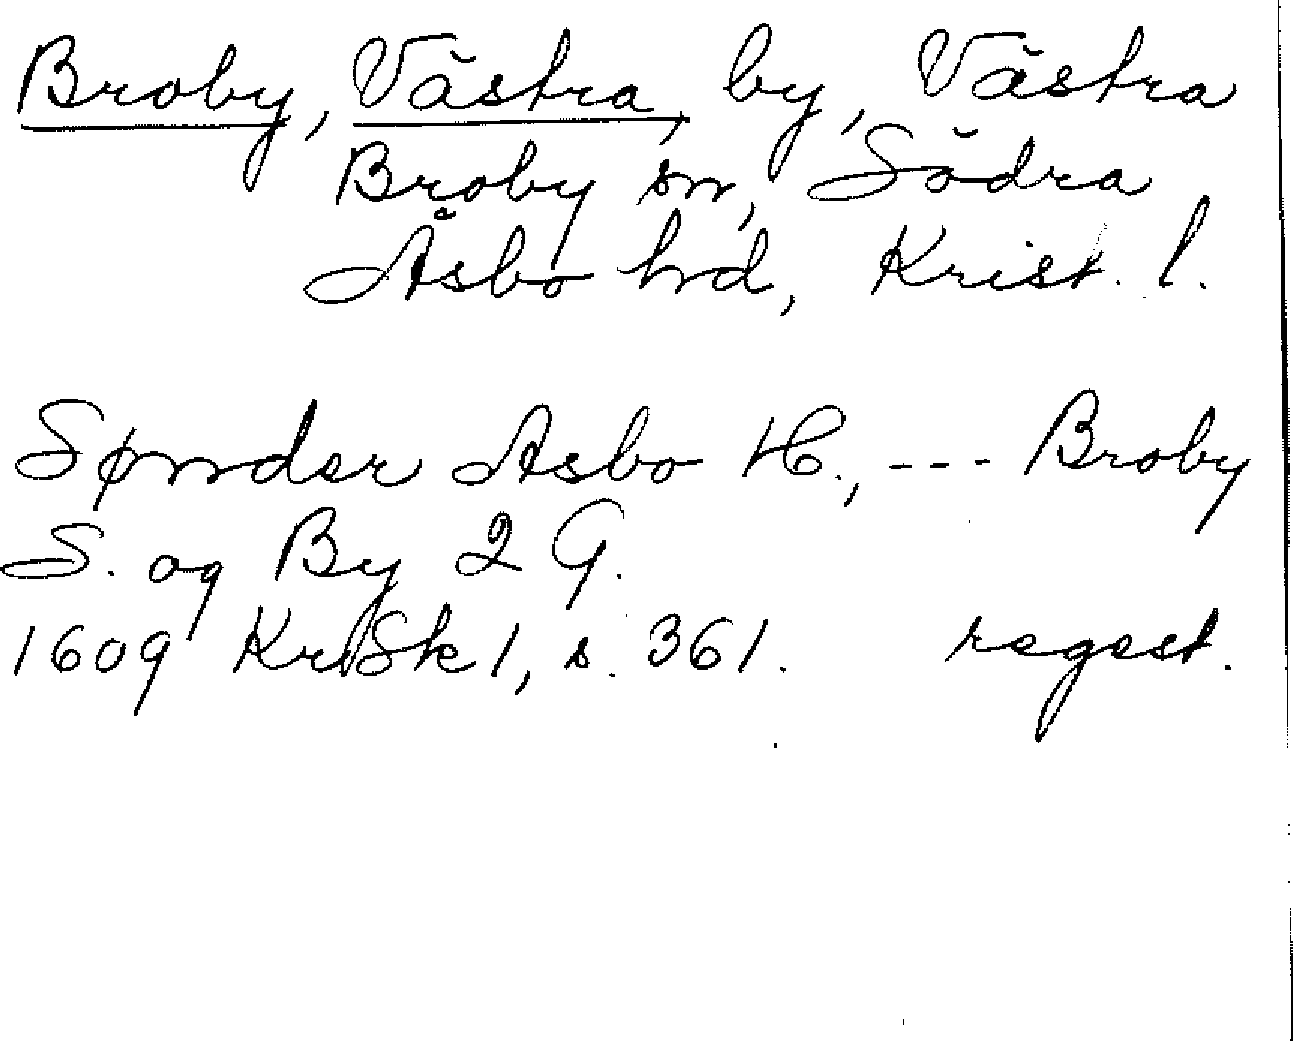 Broby, Västra, by, Västra
Broby sn, Södra
Åsbo hd, Krist. l.
Sønder Asbo H., --- Broby
S. og By 2 G.
1609 KrBSk 1, s. 361. regest.